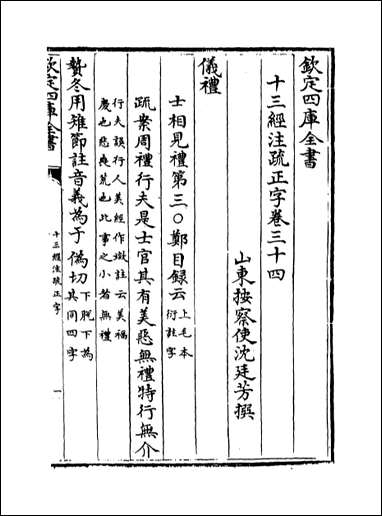 欽定四庫全書
十三經注疏正字卷三十四
山東按察使沈廷芳撰
儀禮
士相見禮第三○鄭目録云
上毛本
衍註字
疏案周禮行夫是士官其有美惡無禮特行無介
行夫誤行人美經作媺註云美福
慶也惡喪荒也此事之小者無禮
贄冬用雉節註音義為于偽切
下脱下為
其同四字
欽定四庫全書
十三經注疏正字
一